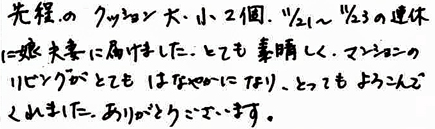 先程のクッション大、小2個、11/21〜11/23の連休
に娘夫妻に届けました。とても素晴しく、マンションの
リビングがとてもはなやかになり、とってもよろこんで
くれました。ありがとうございます。